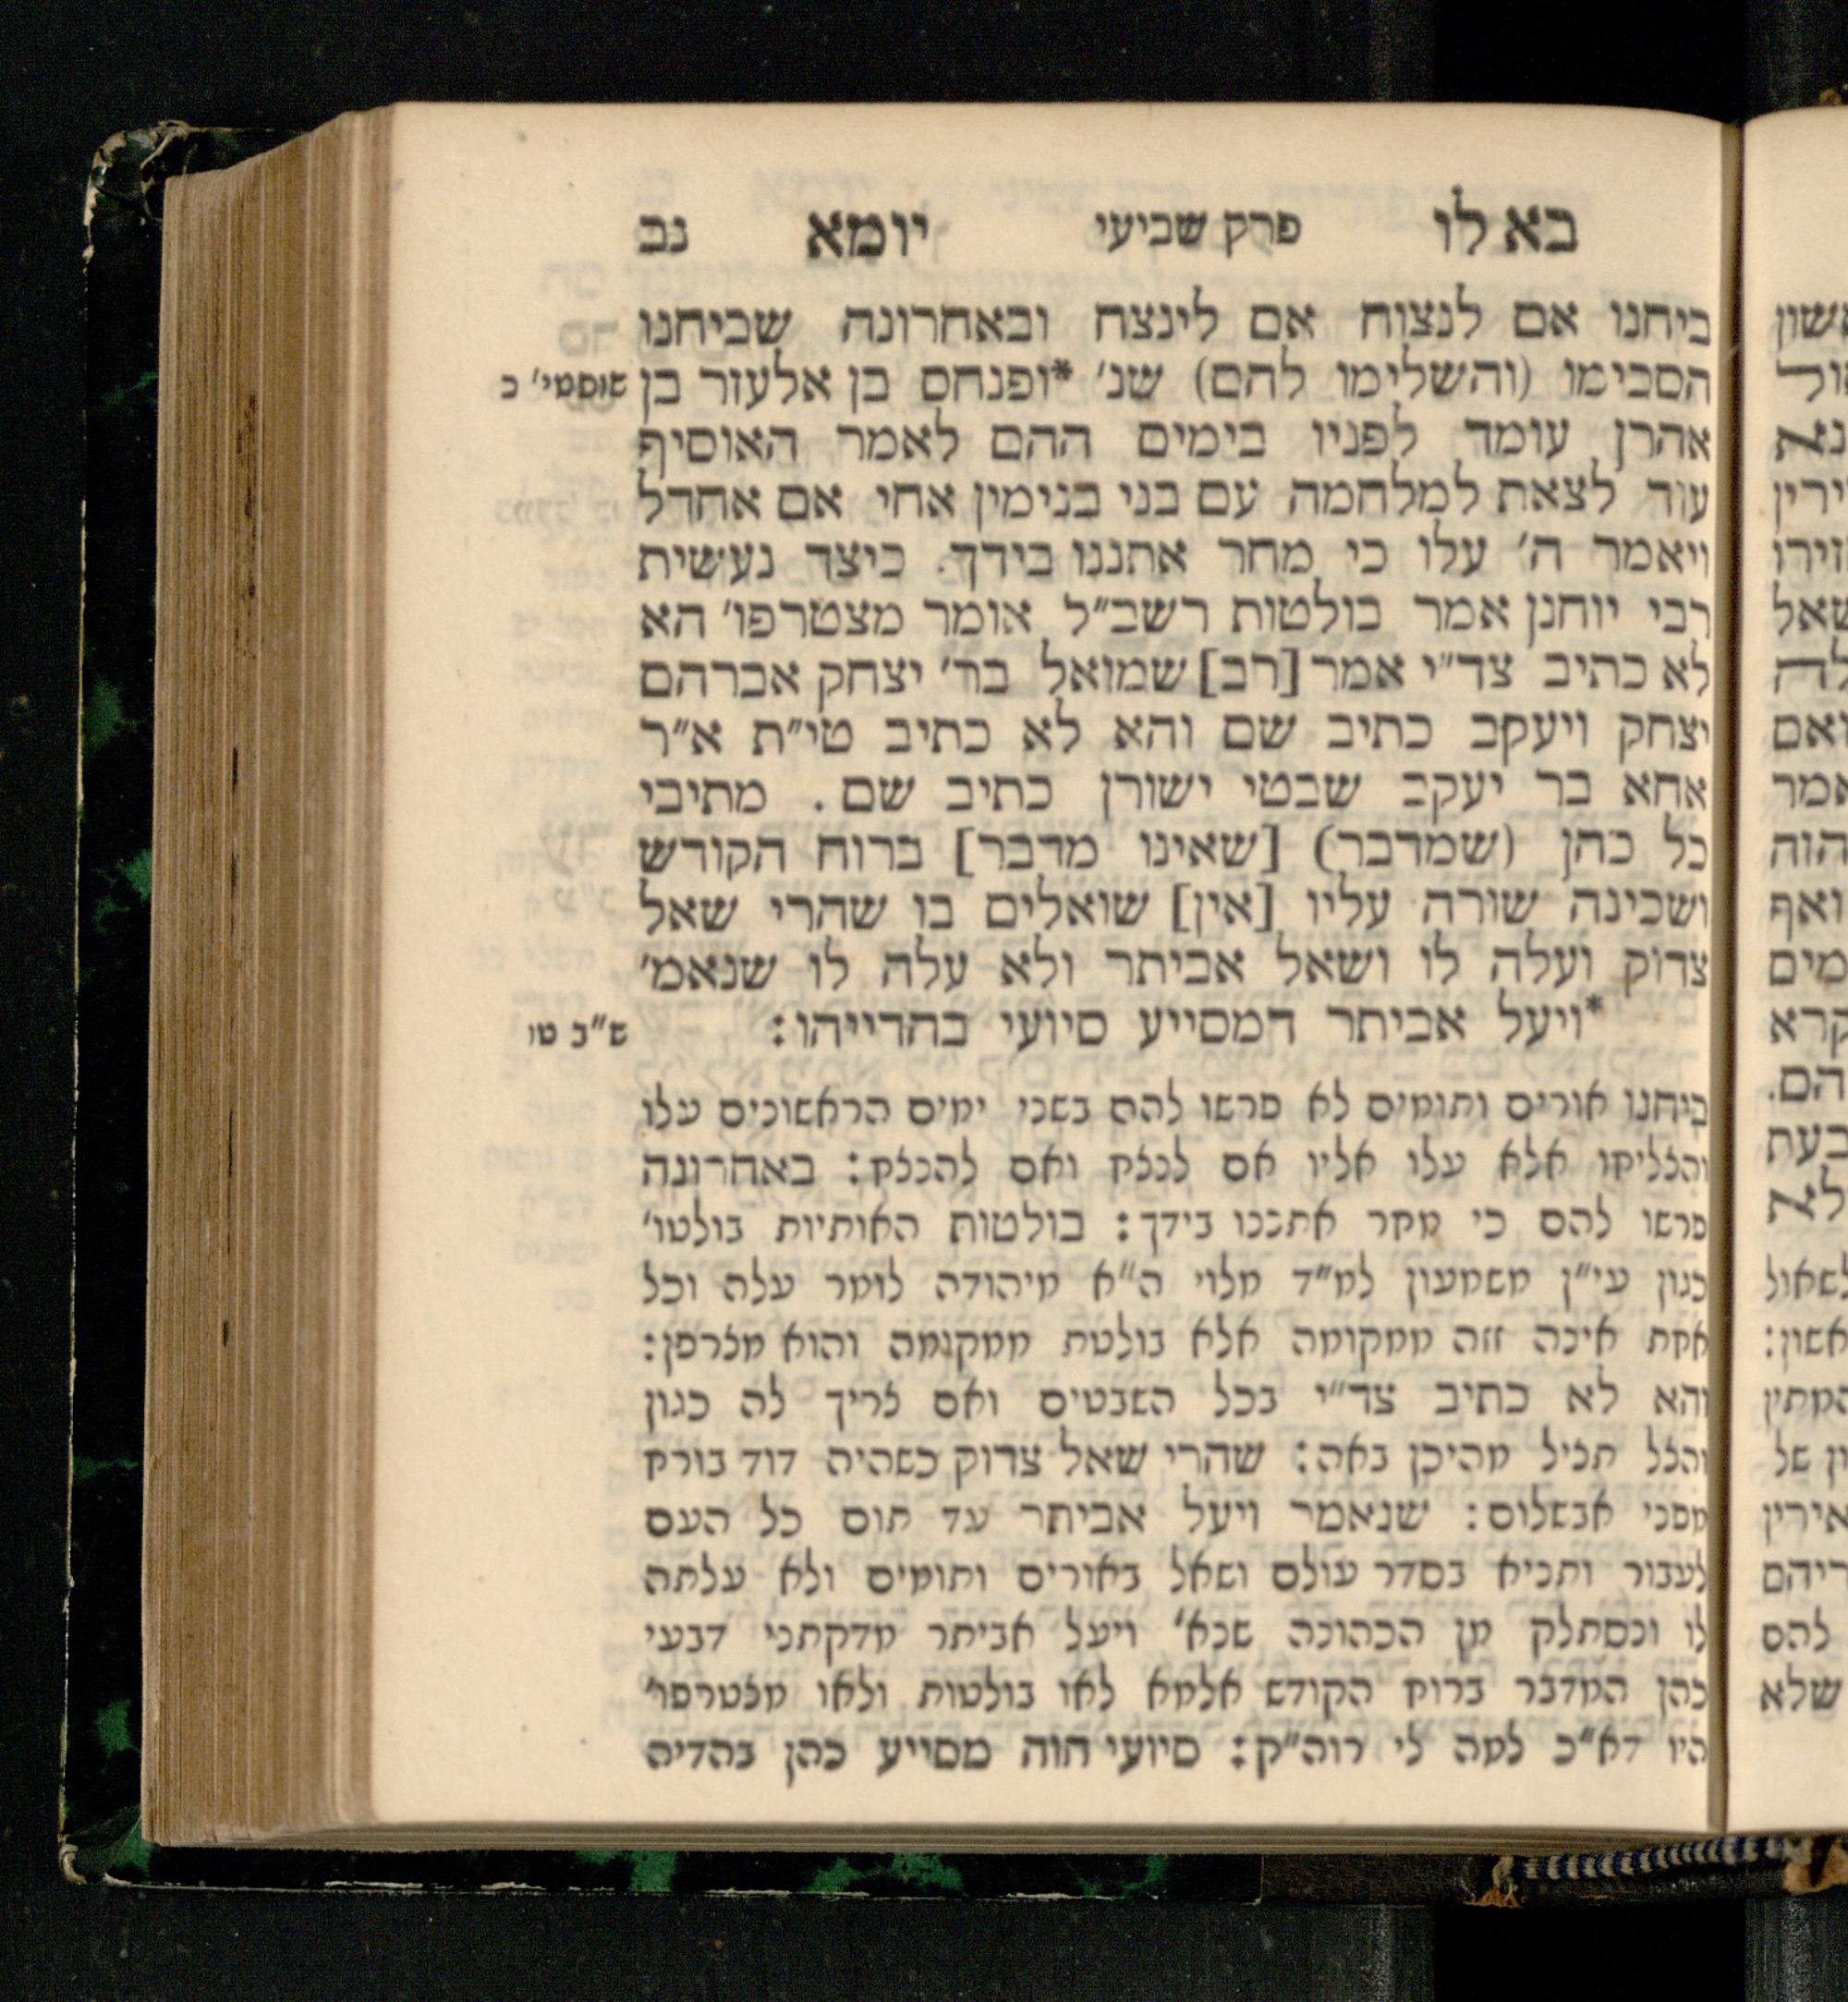 בא לו פרק שביעי יומא נב
ביחנו אם לנצוח אם לינצח ובאחרונה שביחנו
הסכימו (והשלימו להם) שנ׳ *ופנחס בן אלעזר בן
שופטי׳ כ
אהרן עומד לפניו בימים ההם לאמר האוסיף
עוד לצאת למלחמה עם בני בנימין אחי אם אחדל
ויאמר ה׳ עלו כי מחר אתננו בידך. כיצד נעשית
רבי יוחנן אמר בולטות רשב״ל אומר מצטרפו׳ הא
לא כתיב צד״י אמר [רב] שמואל בר׳ יצחק אברהם
יצחק ויעקב כתיב שם והא לא כתיב טי״ת א״ר
אחא בר יעקב שבטי ישורן כתיב שם. מתיבי
כל כהן (שמדבר) [שאינו מדבר] ברוח הקודש
ושכינה שורה עליו [אין] שואלים בו שהרי שאל
צדוק ועלה לו ושאל אביתר ולא עלה לו שנאמ׳
*ויעל אביתר דמסייע סיועי בהדייהו:
ש״ב טו
ביחנו אורים ותומים לא פרשו להם בשני ימים הראשונים עלו
והצליחו אלא עלו אליו אם לנצח ואם להנצח: באחרונה
פרשו להם כי מחר אתננו בידך: בולטות האותיות בולטו׳
כגון עי״ן משמעון למ״ד מלוי ה״א מיהודה לומר עלה וכל
אחת אינה זזה ממקומה אלא בולטת ממקומה והוא מצרפן:
והא לא כתיב צד״י בכל השבטים ואם צריך לה כגון
והצל תציל מהיכן באה: שהרי שאל צדוק כשהיה דוד בורח
מפני אבשלום: שנאמר ויעל אביתר עד תום כל העם
לעבור ותניא בסדר עולם ושאל באורים ותומים ולא עלתה
לו ונסתלק מן הכהונה שנא׳ ויעל אביתר מדקתני דבעי
כהן המדבר ברוח הקודש אלמא לאו בולטות ולאו מצטרפו׳
היו דא״כ למה לי רוה״ק: סיועי הוה מסייע כהן בהדיה